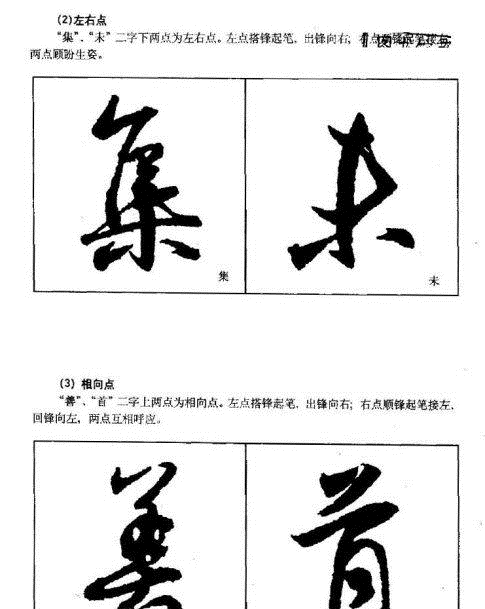 (2)左右点
“集”、“未”二字下两点为左右点。左点搭锋起笔、出锋向右；右点
两点顾盼生姿。
集 未
集
未
(3) 相向点
“善”、“首”二字上两点为相向点。左点搭锋起笔、出锋向右；右点顺锋起笔接左、
回锋向左，两点互相呼应。
善 首